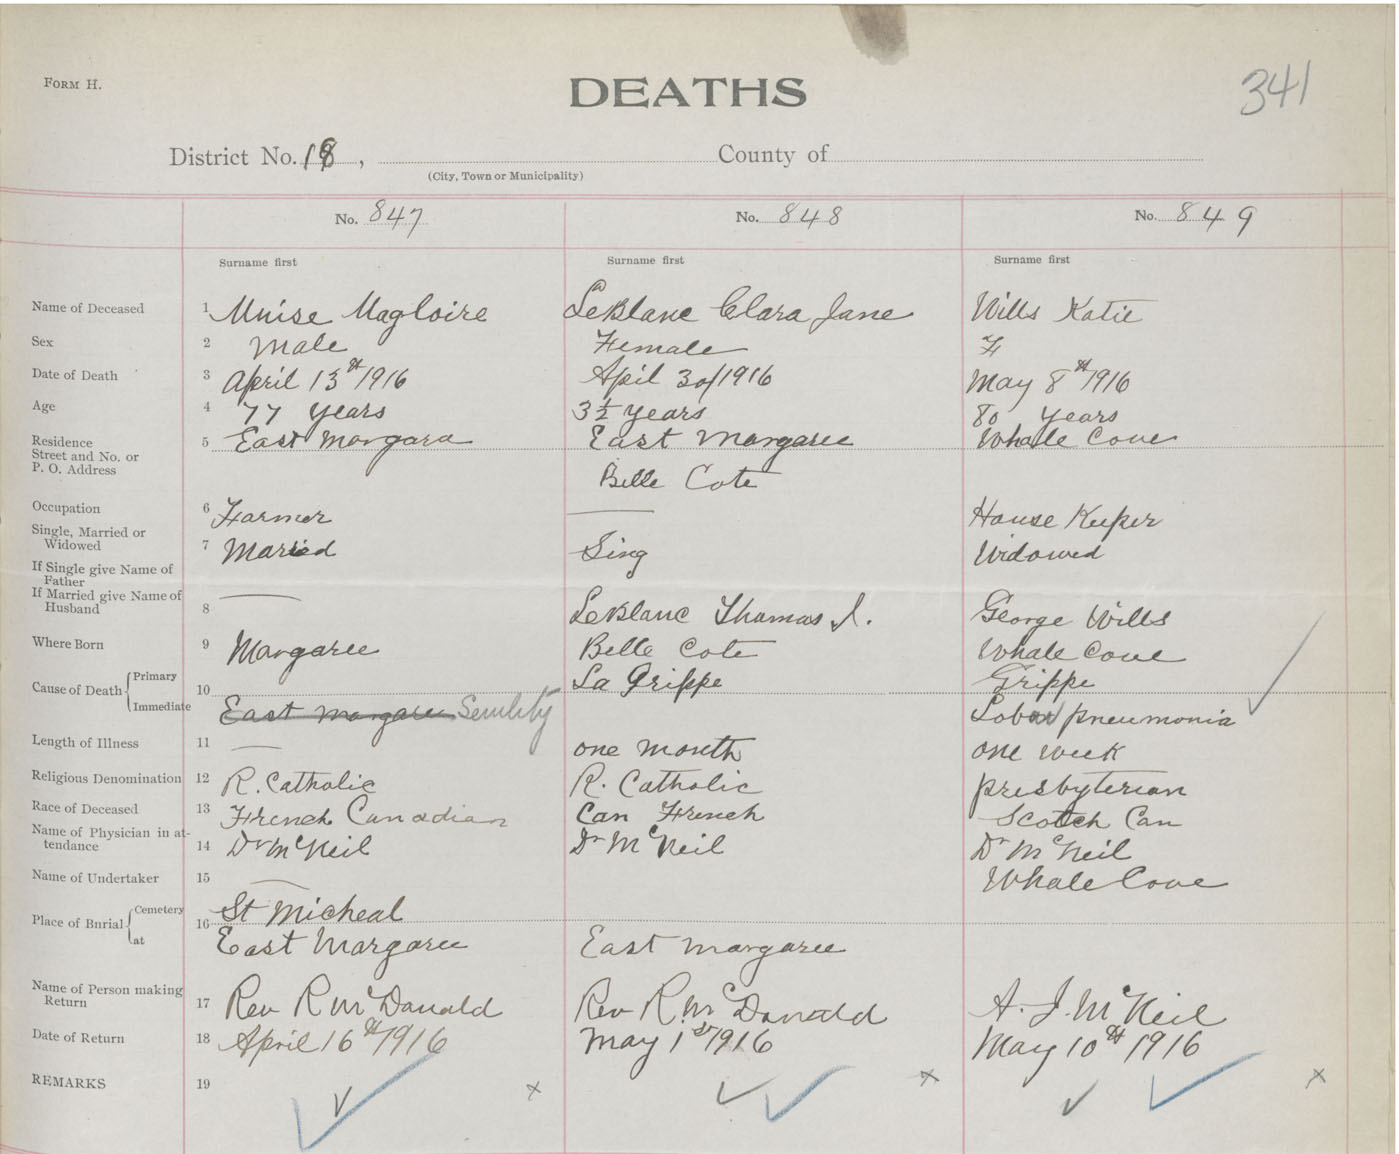 FORM H.
DEATHS
341
District No. 18, County of
(City, Town or Municipality)
No. 847 No. 848 No. 849
Surname first Surname first Surname first
Name of Deceased 1 Muise Magloire LeBlanc Clara Jane Wills Katie
Sex 2 Male Female F
Date of Death 3 April 13th/1916 April 30/1916 May 8th/1916
Age 4 77 years 3½ years 80 years
Residence Street and No. or P. O. Address 5 East Margara East Margaree Whale Cove
Belle Cote
Occupation 6 Farmer — House Keeper
Single, Married or Widowed 7 Maried Sing Widowed
If Single give Name of Father
If Married give Name of Husband 8 — LeBlanc Thomas J. George Wills
Where Born 9 Margaree Belle Cote Whale Cove
Cause of Death { Primary 10 La Grippe Grippe
Immediate East Margaree Senility Lobar pneumonia
Length of Illness 11 — one month one week
Religious Denomination 12 R. Catholic R. Catholic presbyterian
Race of Deceased 13 French Canadian Can French Scotch Can
Name of Physician in attendance 14 Dr McNeil Dr McNeil Dr McNeil
Name of Undertaker 15 — Whale Cove
Place of Burial { Cemetery 16 St Micheal
at East Margaree East Margaree
Name of Person making Return 17 Rev R McDanald Rev R. McDonald A. J. McNeil
Date of Return 18 April 16th/1916 May 1st/1916 May 10th/1916
REMARKS 19 x x x